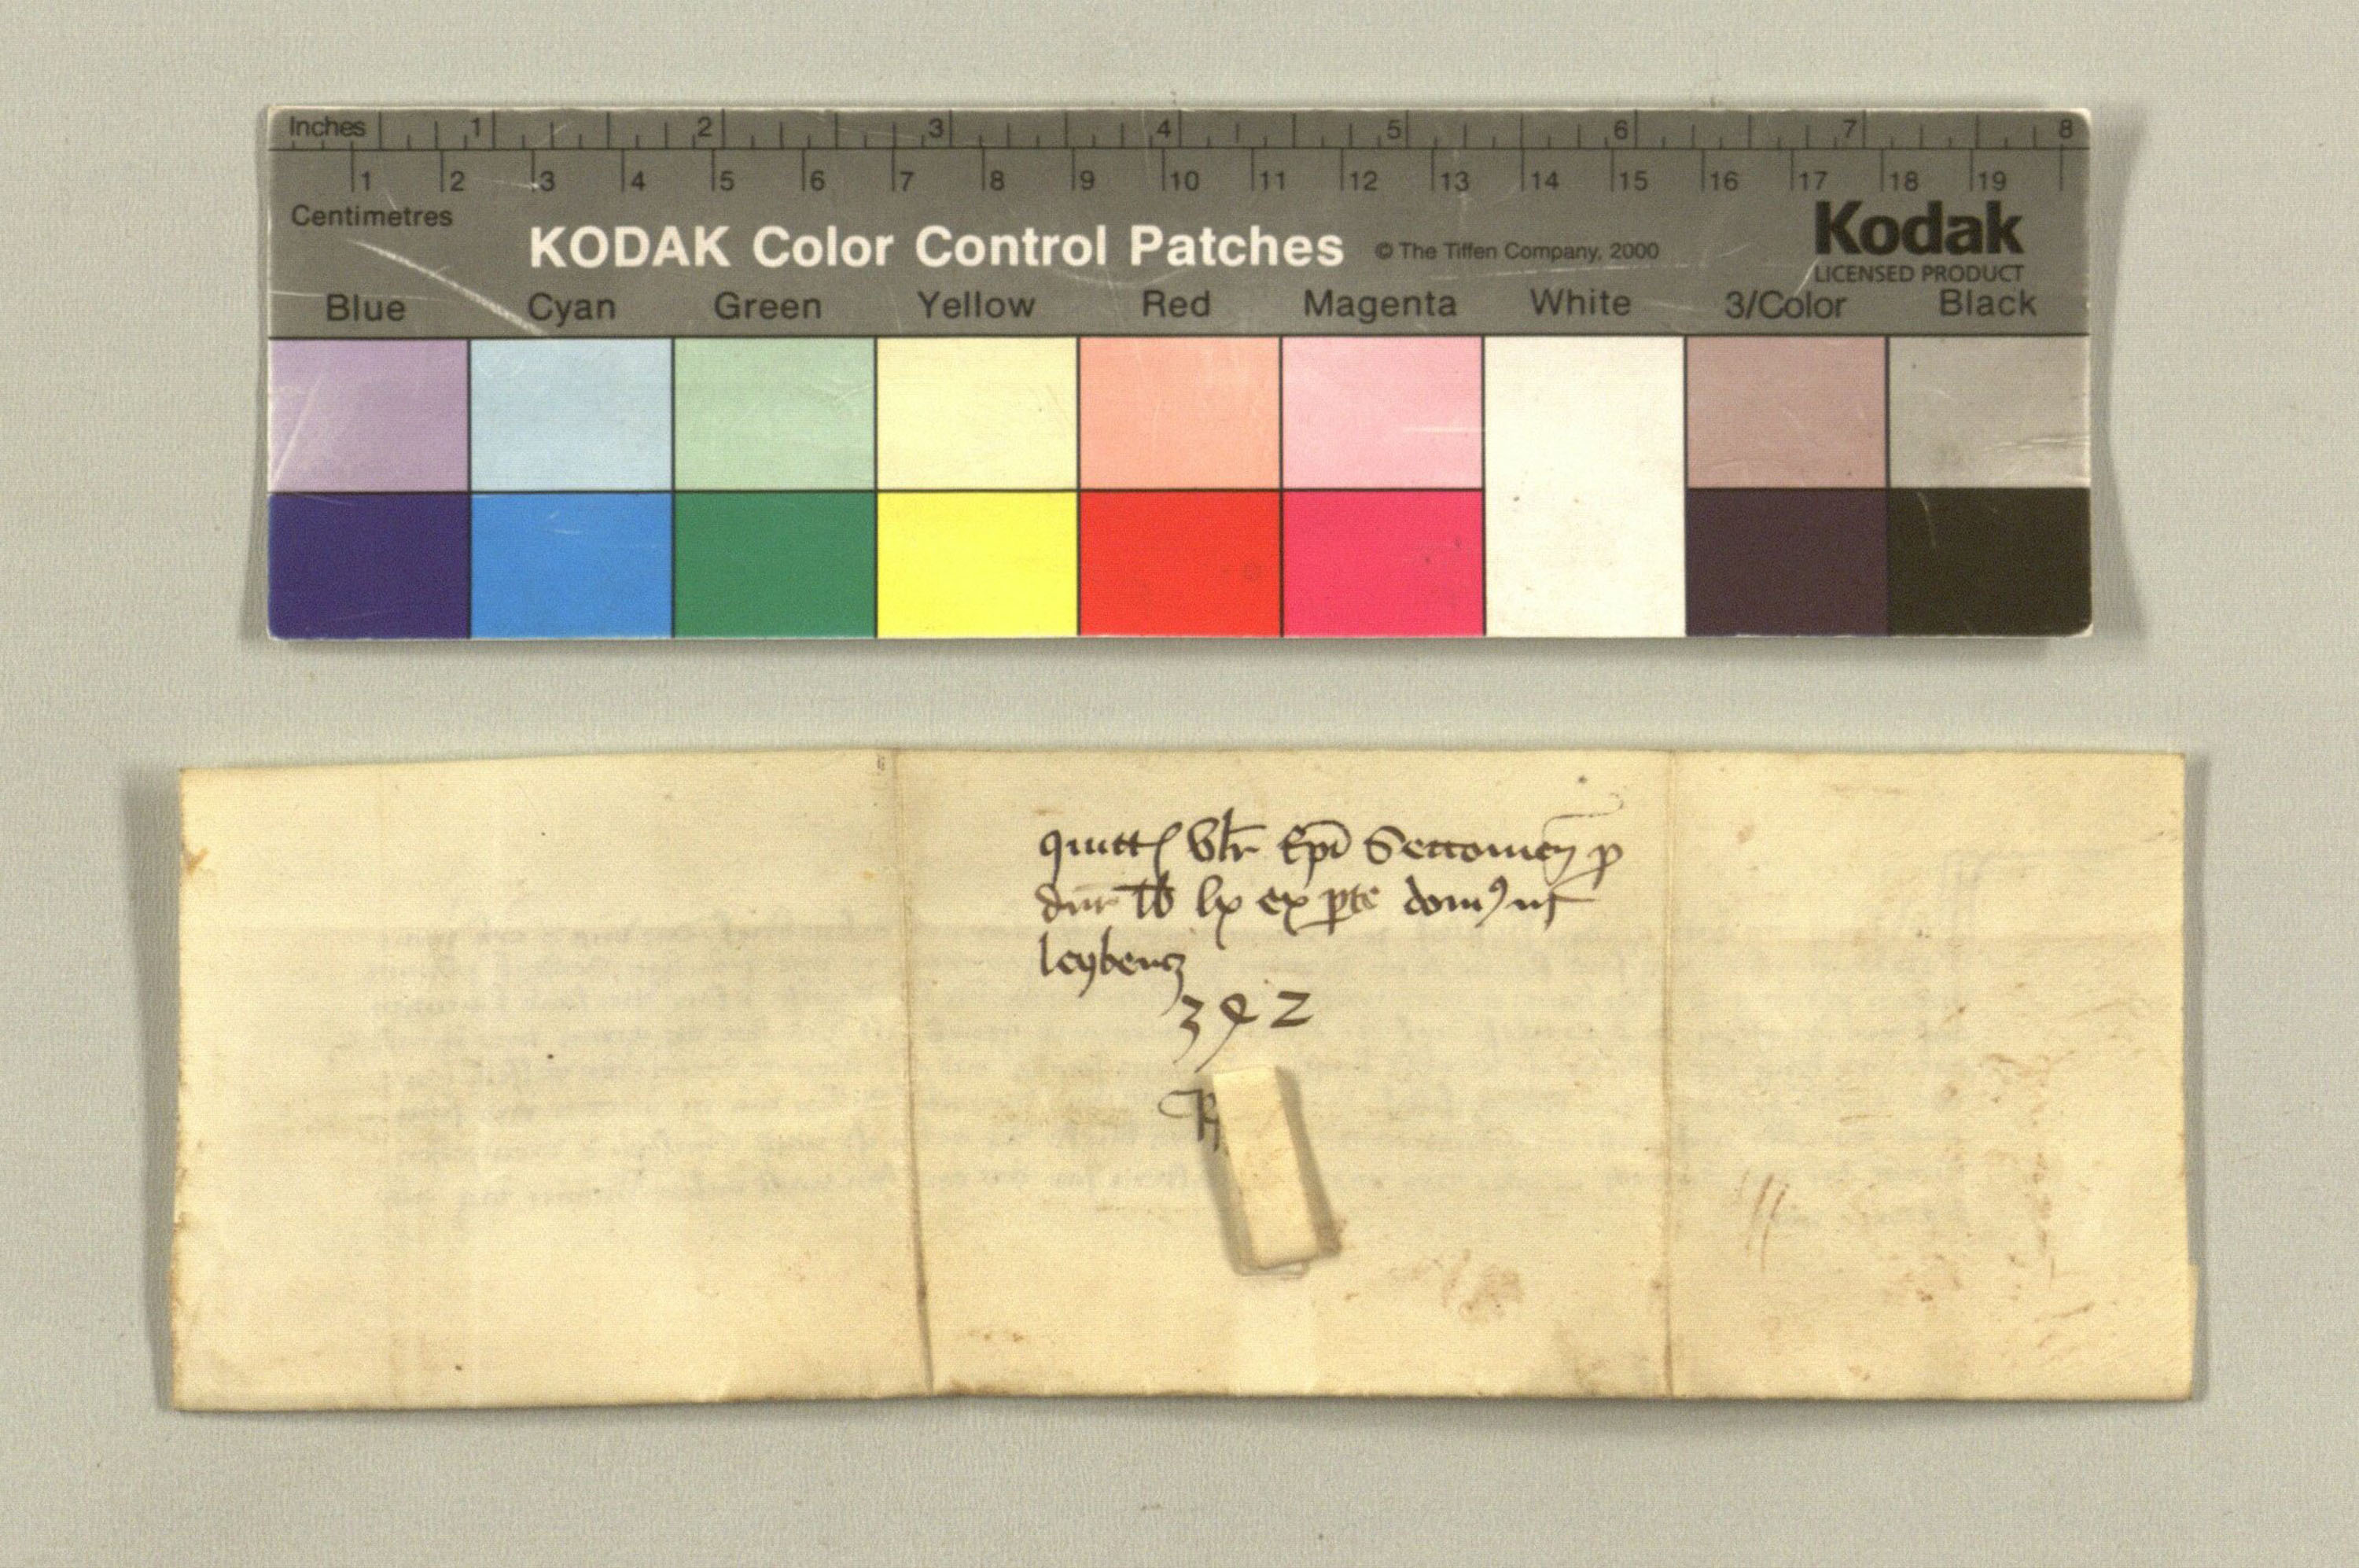 Inches 1 2 3 4 5 6 7 8
1 2 3 4 5 6 7 8 9 10 11 12 13 14 15 16 17 18 19
Centimetres
KODAK Color Control Patches © The Tiffen Company, 2000 Kodak
LICENSED PRODUCT
Blue Cyan Green Yellow Red Magenta White 3/Color Black
quitt Ulr Epi p
lb lx ex pte dom9 nr
leybencz
392